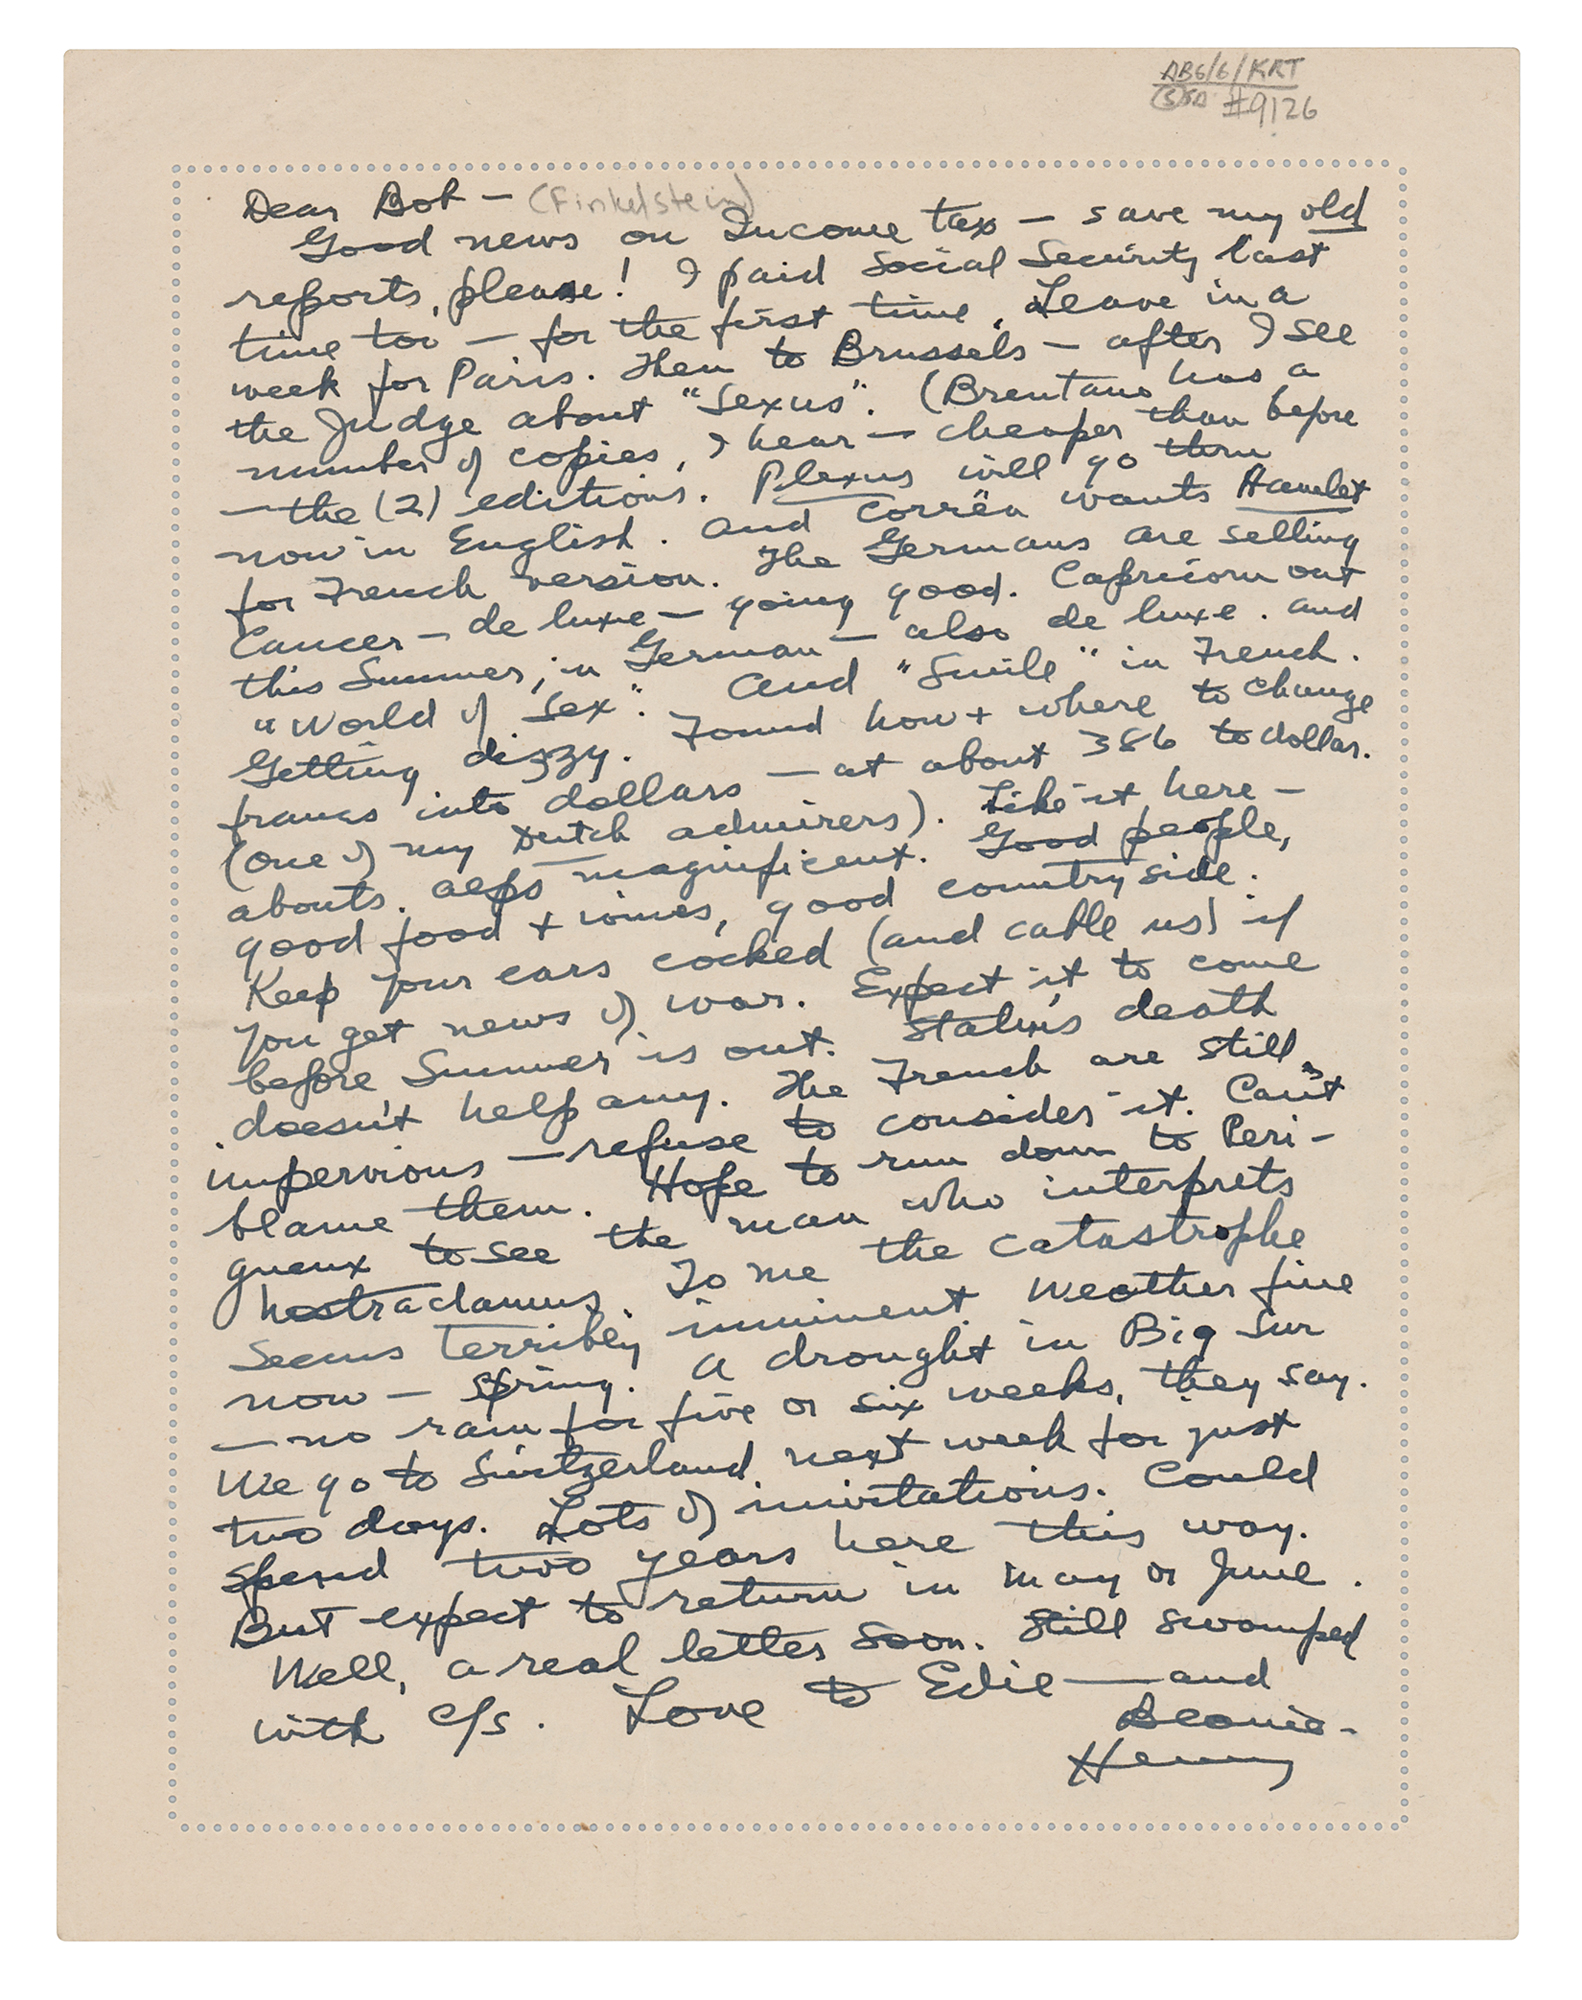 AB6/6/KRT
#9126
Dear Bob — (Finkelstein)
Good news on Income tax — save my old
reports, please! I paid Social Security last
time too — for the first time. Leave in a
week for Paris. Then to Brussels — after I see
the Judge about "Sexus". (Brentano has a
number of copies, I hear — cheaper than before
— the (2) editions. Plexus will go thru
now in English. And Corrêa wants Hamlet
for French version. The Germans are selling
Cancer — de luxe — going good. Capricorn out
this Summer, in German — also de luxe. And
"World of Sex". And "Smile" in French.
Getting dizzy. Found how + where to change
francs into dollars — at about 386 to dollar.
(one of my Dutch admirers). Like it here —
abouts. Alps magnificent. Good people,
good food + wines, good countryside.
Keep your ears cocked (and cable us) if
you get news of war. Expect it to come
before Summer is out. Stalin's death
doesn't help any. The French are still
impervious — refuse to consider it. Can't
blame them. Hope to run down to Peri-
gueux to see the man who interprets
Nostradamus. To me the catastrophe
seems terribly imminent. Weather fine
now — Spring. A drought in Big Sur
— no rain for five or six weeks, they say.
We go to Switzerland next week for just
two days. Lots of invitations. Could
spend two years here this way.
But expect to return in May or June.
Well, a real letter soon. Still swamped
with c/s. Love to Edie — and
Henry